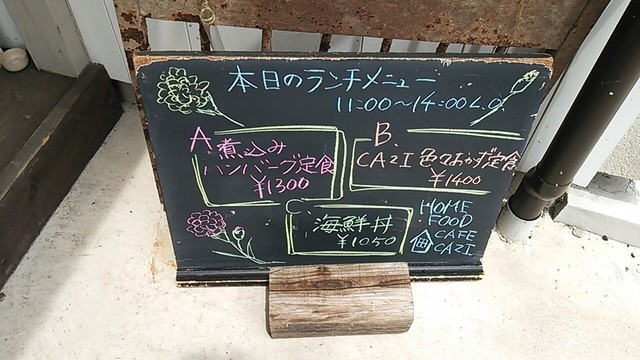 本日のランチメニュー
11:00〜14:00L.O.
A 煮込み
ハンバーグ定食
¥1300
B.
CAZI 色々おかず定食
¥1400
C
海鮮丼
¥1050
HOME
FOOD
CAFE
CAZI